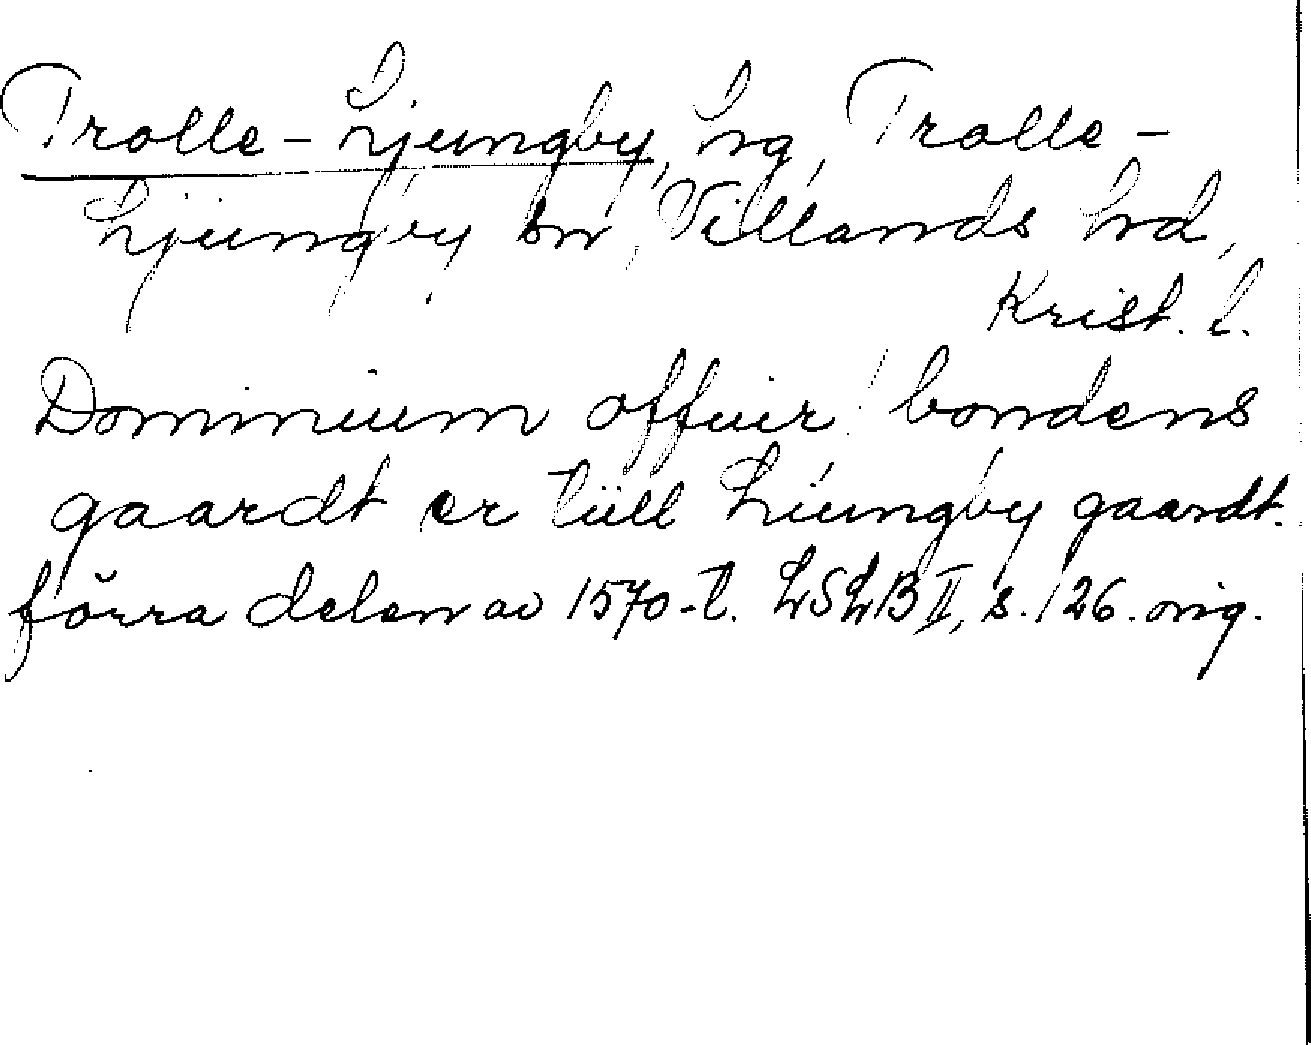 Trolle-Ljungby, hg, Trolle-
Ljungby sn, Villands hd,
Krist. l.
Dominium offuir bondens
gaardt er tiill Liungby gaardt.
förra delen av 1570-t. LSLB II, s. 126. orig.